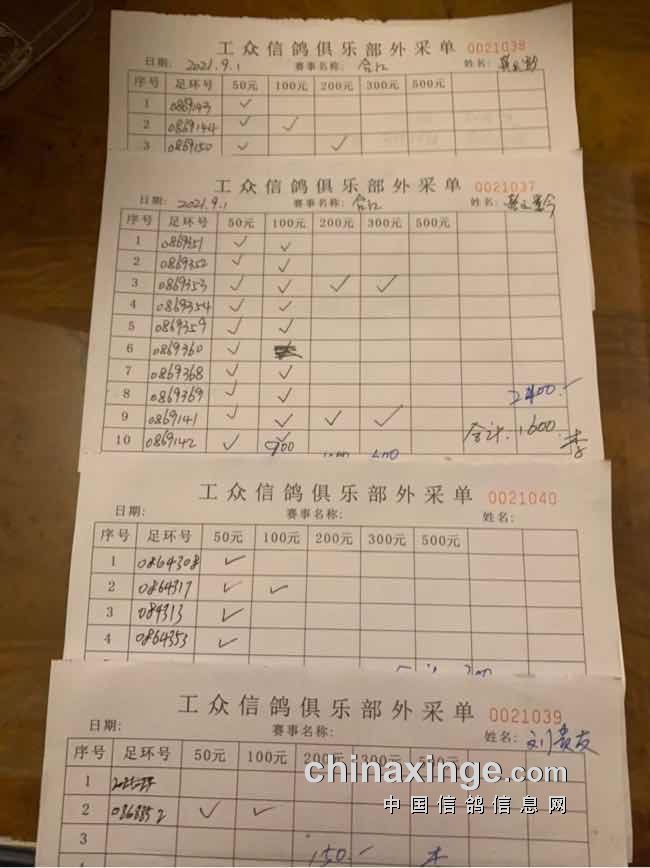 工众信鸽俱乐部外采单 0021038
日期: 2021.9.1 赛事名称: 合江 姓名:
序号 足环号 50元 100元 200元 300元 500元
1 0869143 ✓
2 0869144 ✓ ✓
3 0869150 ✓ ✓
工众信鸽俱乐部外采单 0021037
日期: 2021.9.1 赛事名称: 合江 姓名:
序号 足环号 50元 100元 200元 300元 500元
1 0869351 ✓ ✓
2 0869352 ✓ ✓
3 0869353 ✓ ✓ ✓ ✓
4 0869354 ✓ ✓
5 0869359 ✓ ✓
6 0869360 ✓
7 0869368 ✓ ✓
8 0869369 ✓ ✓ 2400.-
9 0869141 ✓ ✓ ✓ ✓ 合计: 1600.
10 0869142 ✓ ✓ 李
工众信鸽俱乐部外采单 0021040
日期: 赛事名称: 姓名:
序号 足环号 50元 100元 200元 300元 500元
1 0864308 ✓
2 0864317 ✓ ✓
3 084313 ✓
4 0864353 ✓
工众信鸽俱乐部外采单 0021039
日期: 赛事名称: 姓名: 刘贵友
序号 足环号 50元 100元 200元 300元 500元
1
2 086885 2 ✓ ✓
3 150.-
chinaxinge.com
中国信鸽信息网